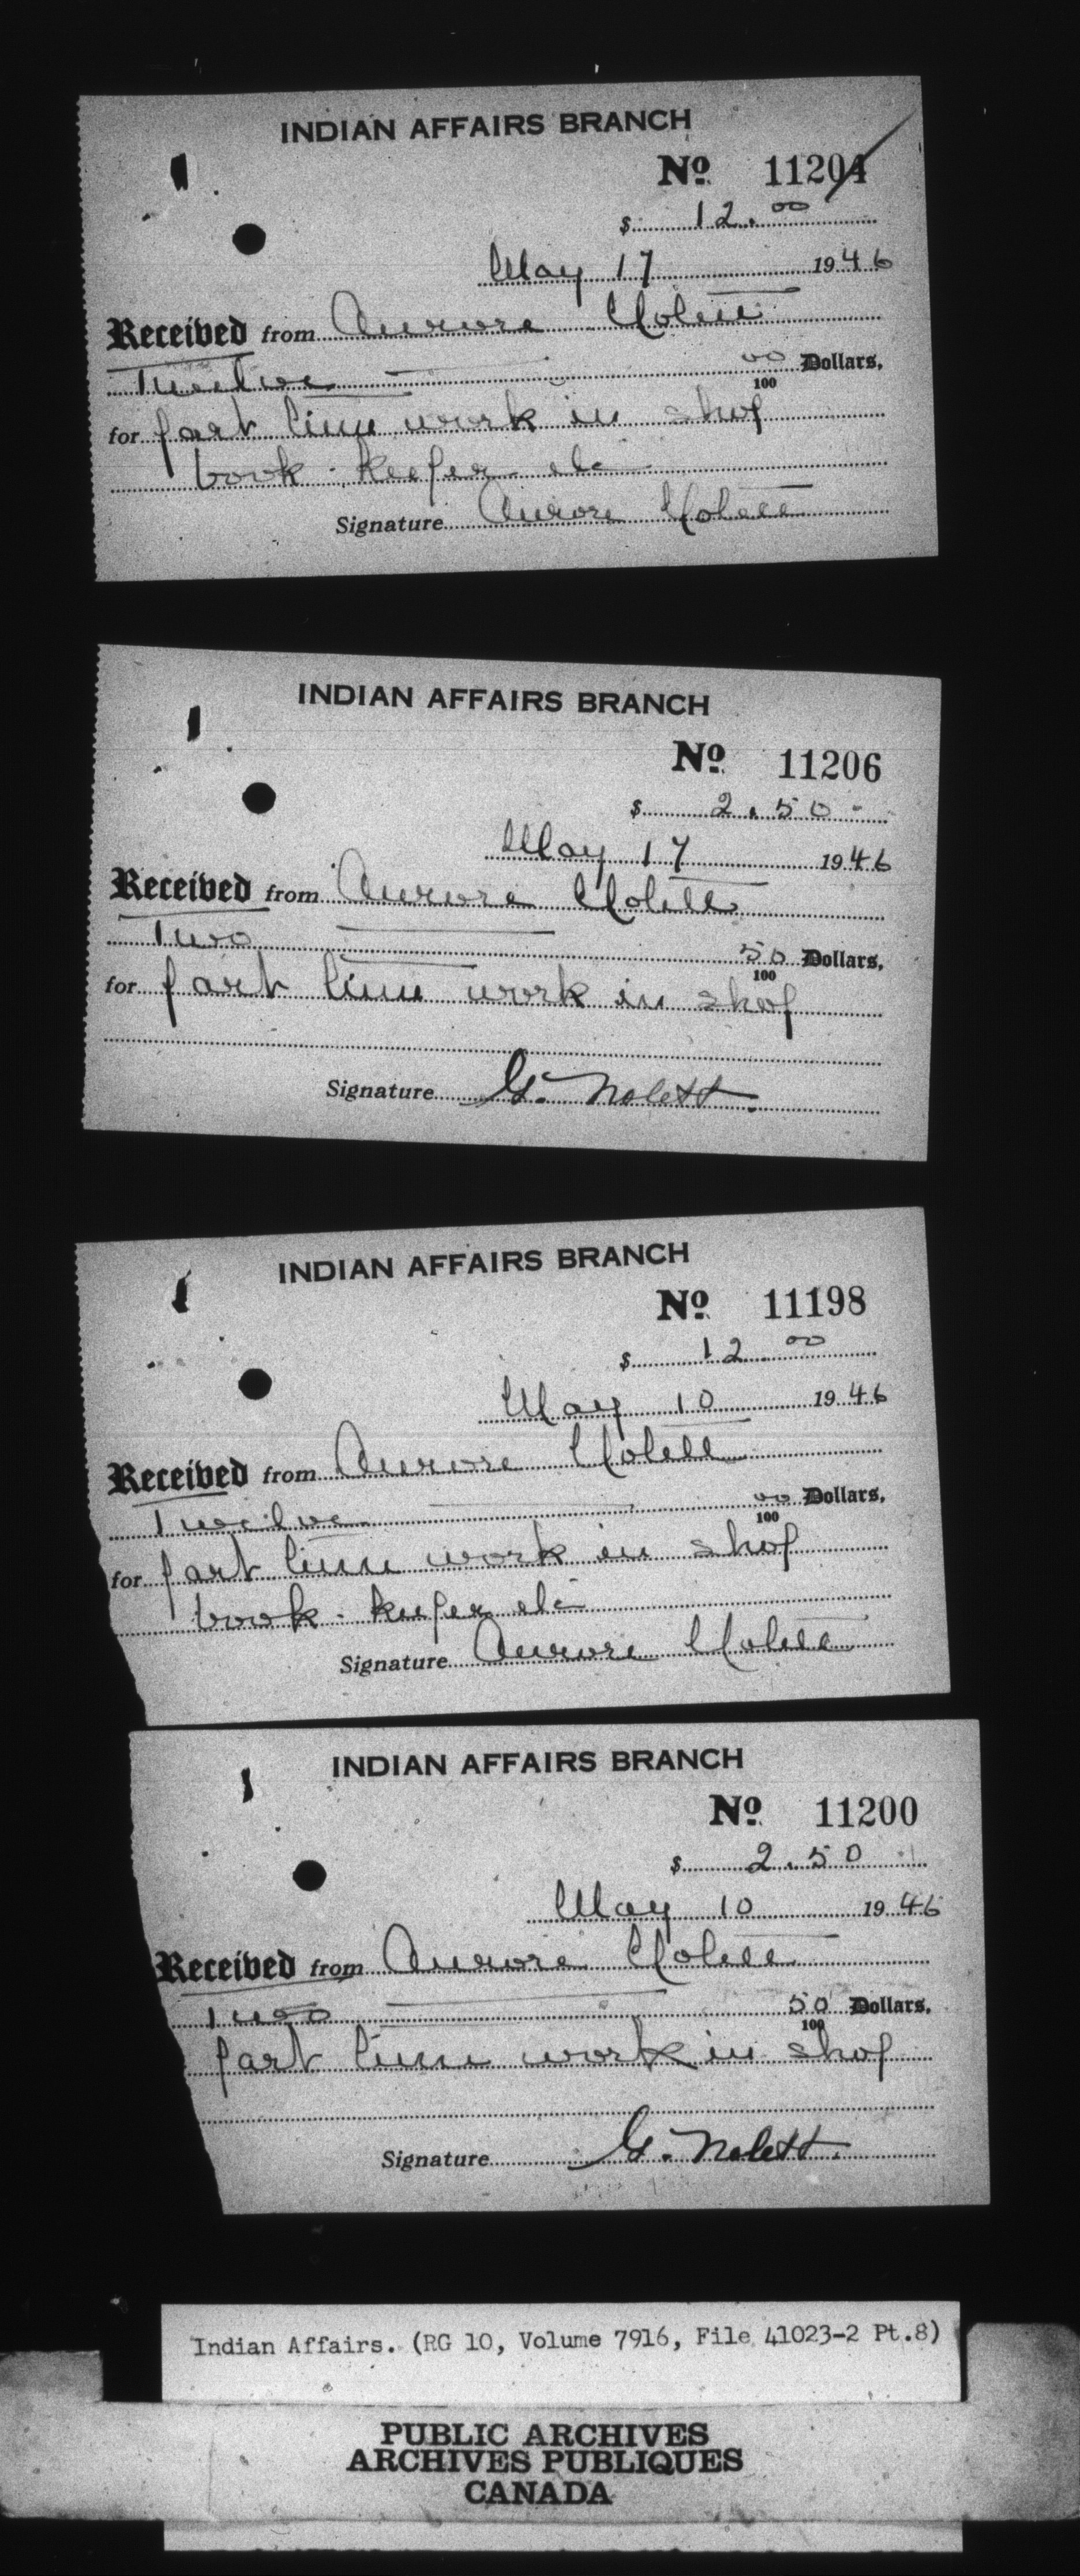 INDIAN AFFAIRS BRANCH
Nº 11204
$ 12.00
May 17 1946
Received from Aurore Nolett
Twelve 00/100 Dollars,
for part time work in shop
book-keeper etc
Signature Aurore Nolett
INDIAN AFFAIRS BRANCH
Nº 11206
$ 2.50
May 17 1946
Received from Aurore Nolett
Two 50/100 Dollars,
for part time work in shop
Signature G. Nolett.
INDIAN AFFAIRS BRANCH
Nº 11198
$ 12.00
May 10 1946
Received from Aurore Nolett
Twelve 00/100 Dollars,
for part time work in shop
book-keeper etc
Signature Aurore Nolett
INDIAN AFFAIRS BRANCH
Nº 11200
$ 2.50
May 10 1946
Received from Aurore Nolett
Two 50/100 Dollars,
part time work in shop
Signature G. Nolett.
Indian Affairs. (RG 10, Volume 7916, File 41023-2 Pt.8)
PUBLIC ARCHIVES
ARCHIVES PUBLIQUES
CANADA